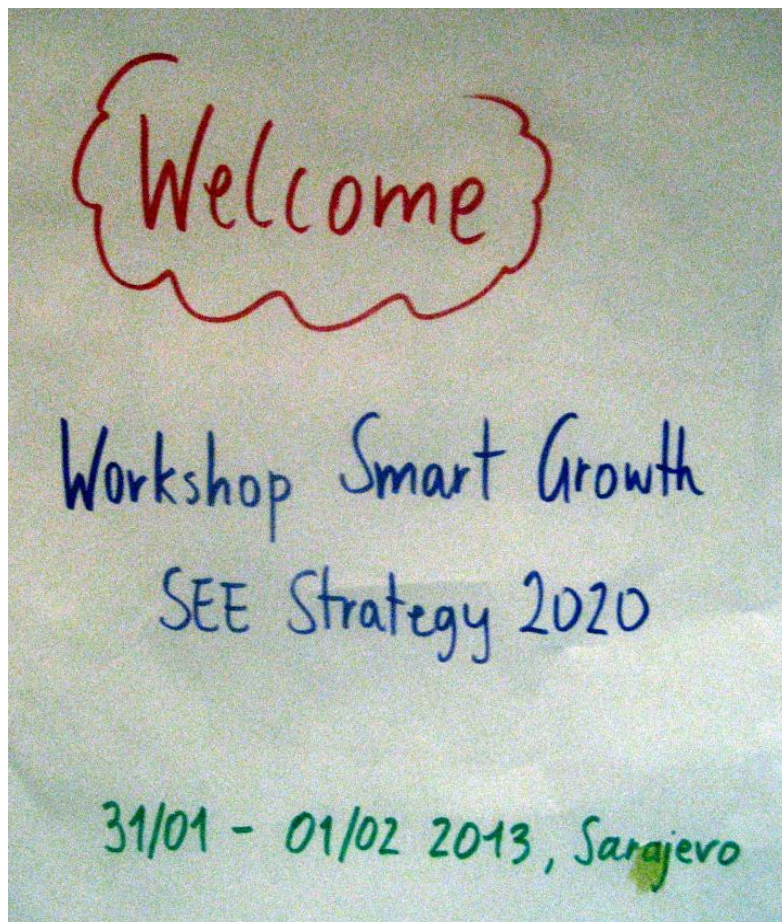 Welcome
Workshop Smart Growth
SEE Strategy 2020
31/01 - 01/02 2013, Sarajevo